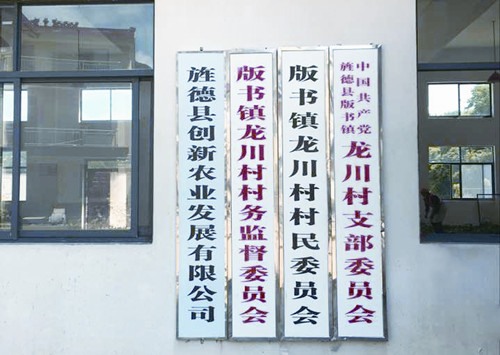 中国共产党
旌德县版书镇
龙川村支部委员会
版书镇龙川村村民委员会
版书镇龙川村村务监督委员会
旌德县创新农业发展有限公司